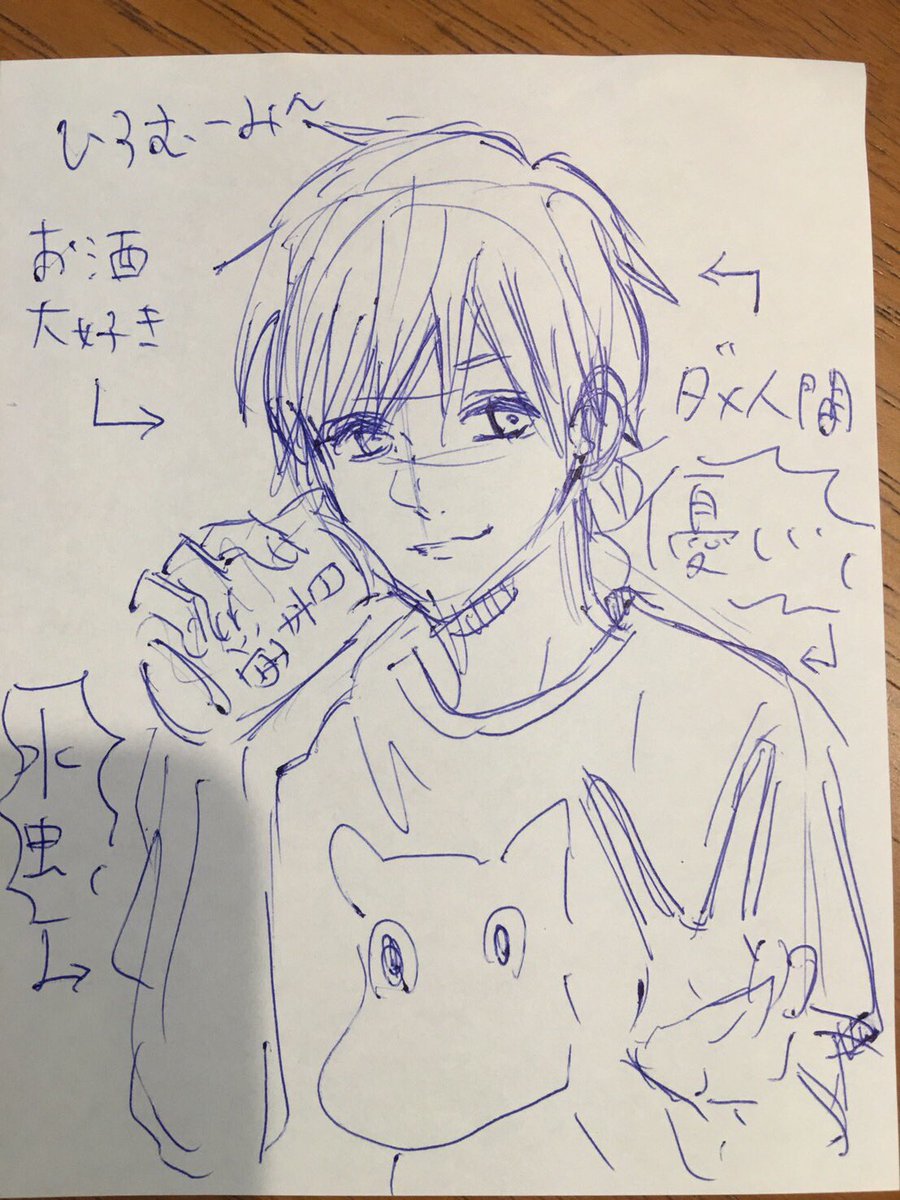 ひろむーみん
お酒
大好き
ダメ人間
優しい
水虫